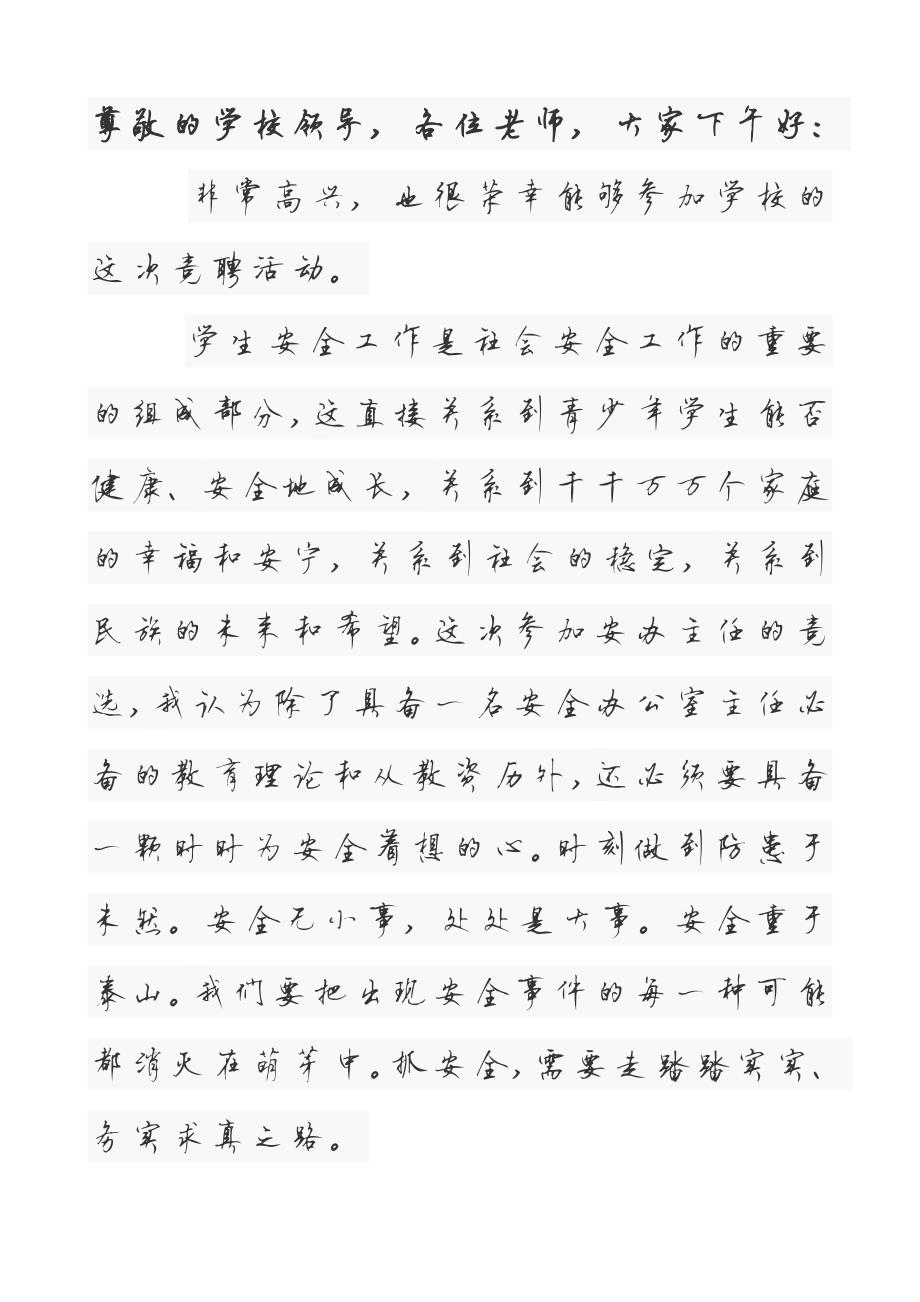 尊敬的学校领导，各位老师，大家下午好：
非常高兴，也很荣幸能够参加学校的
这次竞聘活动。
学生安全工作是社会安全工作的重要
的组成部分，这直接关系到青少年学生能否
健康、安全地成长，关系到千千万万个家庭
的幸福和安宁，关系到社会的稳定，关系到
民族的未来和希望。这次参加安办主任的竞
选，我认为除了具备一名安全办公室主任必
备的教育理论和从教资历外，还必须要具备
一颗时时为安全着想的心。时刻做到防患于
未然。安全无小事，处处是大事。安全重于
泰山。我们要把出现安全事件的每一种可能
都消灭在萌芽中。抓安全，需要走踏踏实实、
务实求真之路。